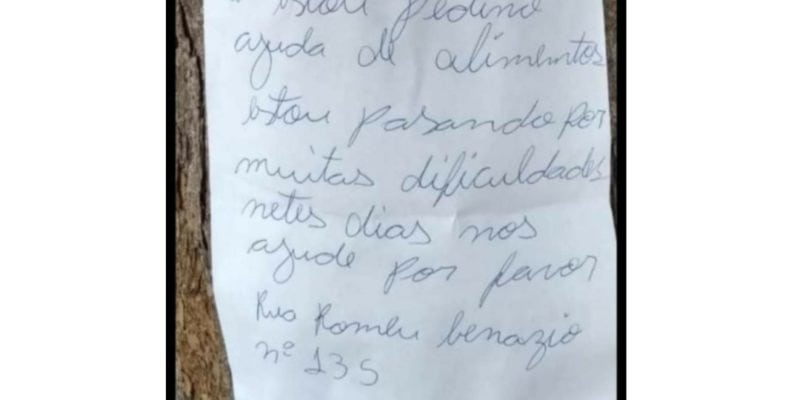 Estou pedino
ajuda de alimemtos
Estou pasando por
muitas dificuldades
netes dias nos
ajude por favor
Rua Romeu benazio
nº 135